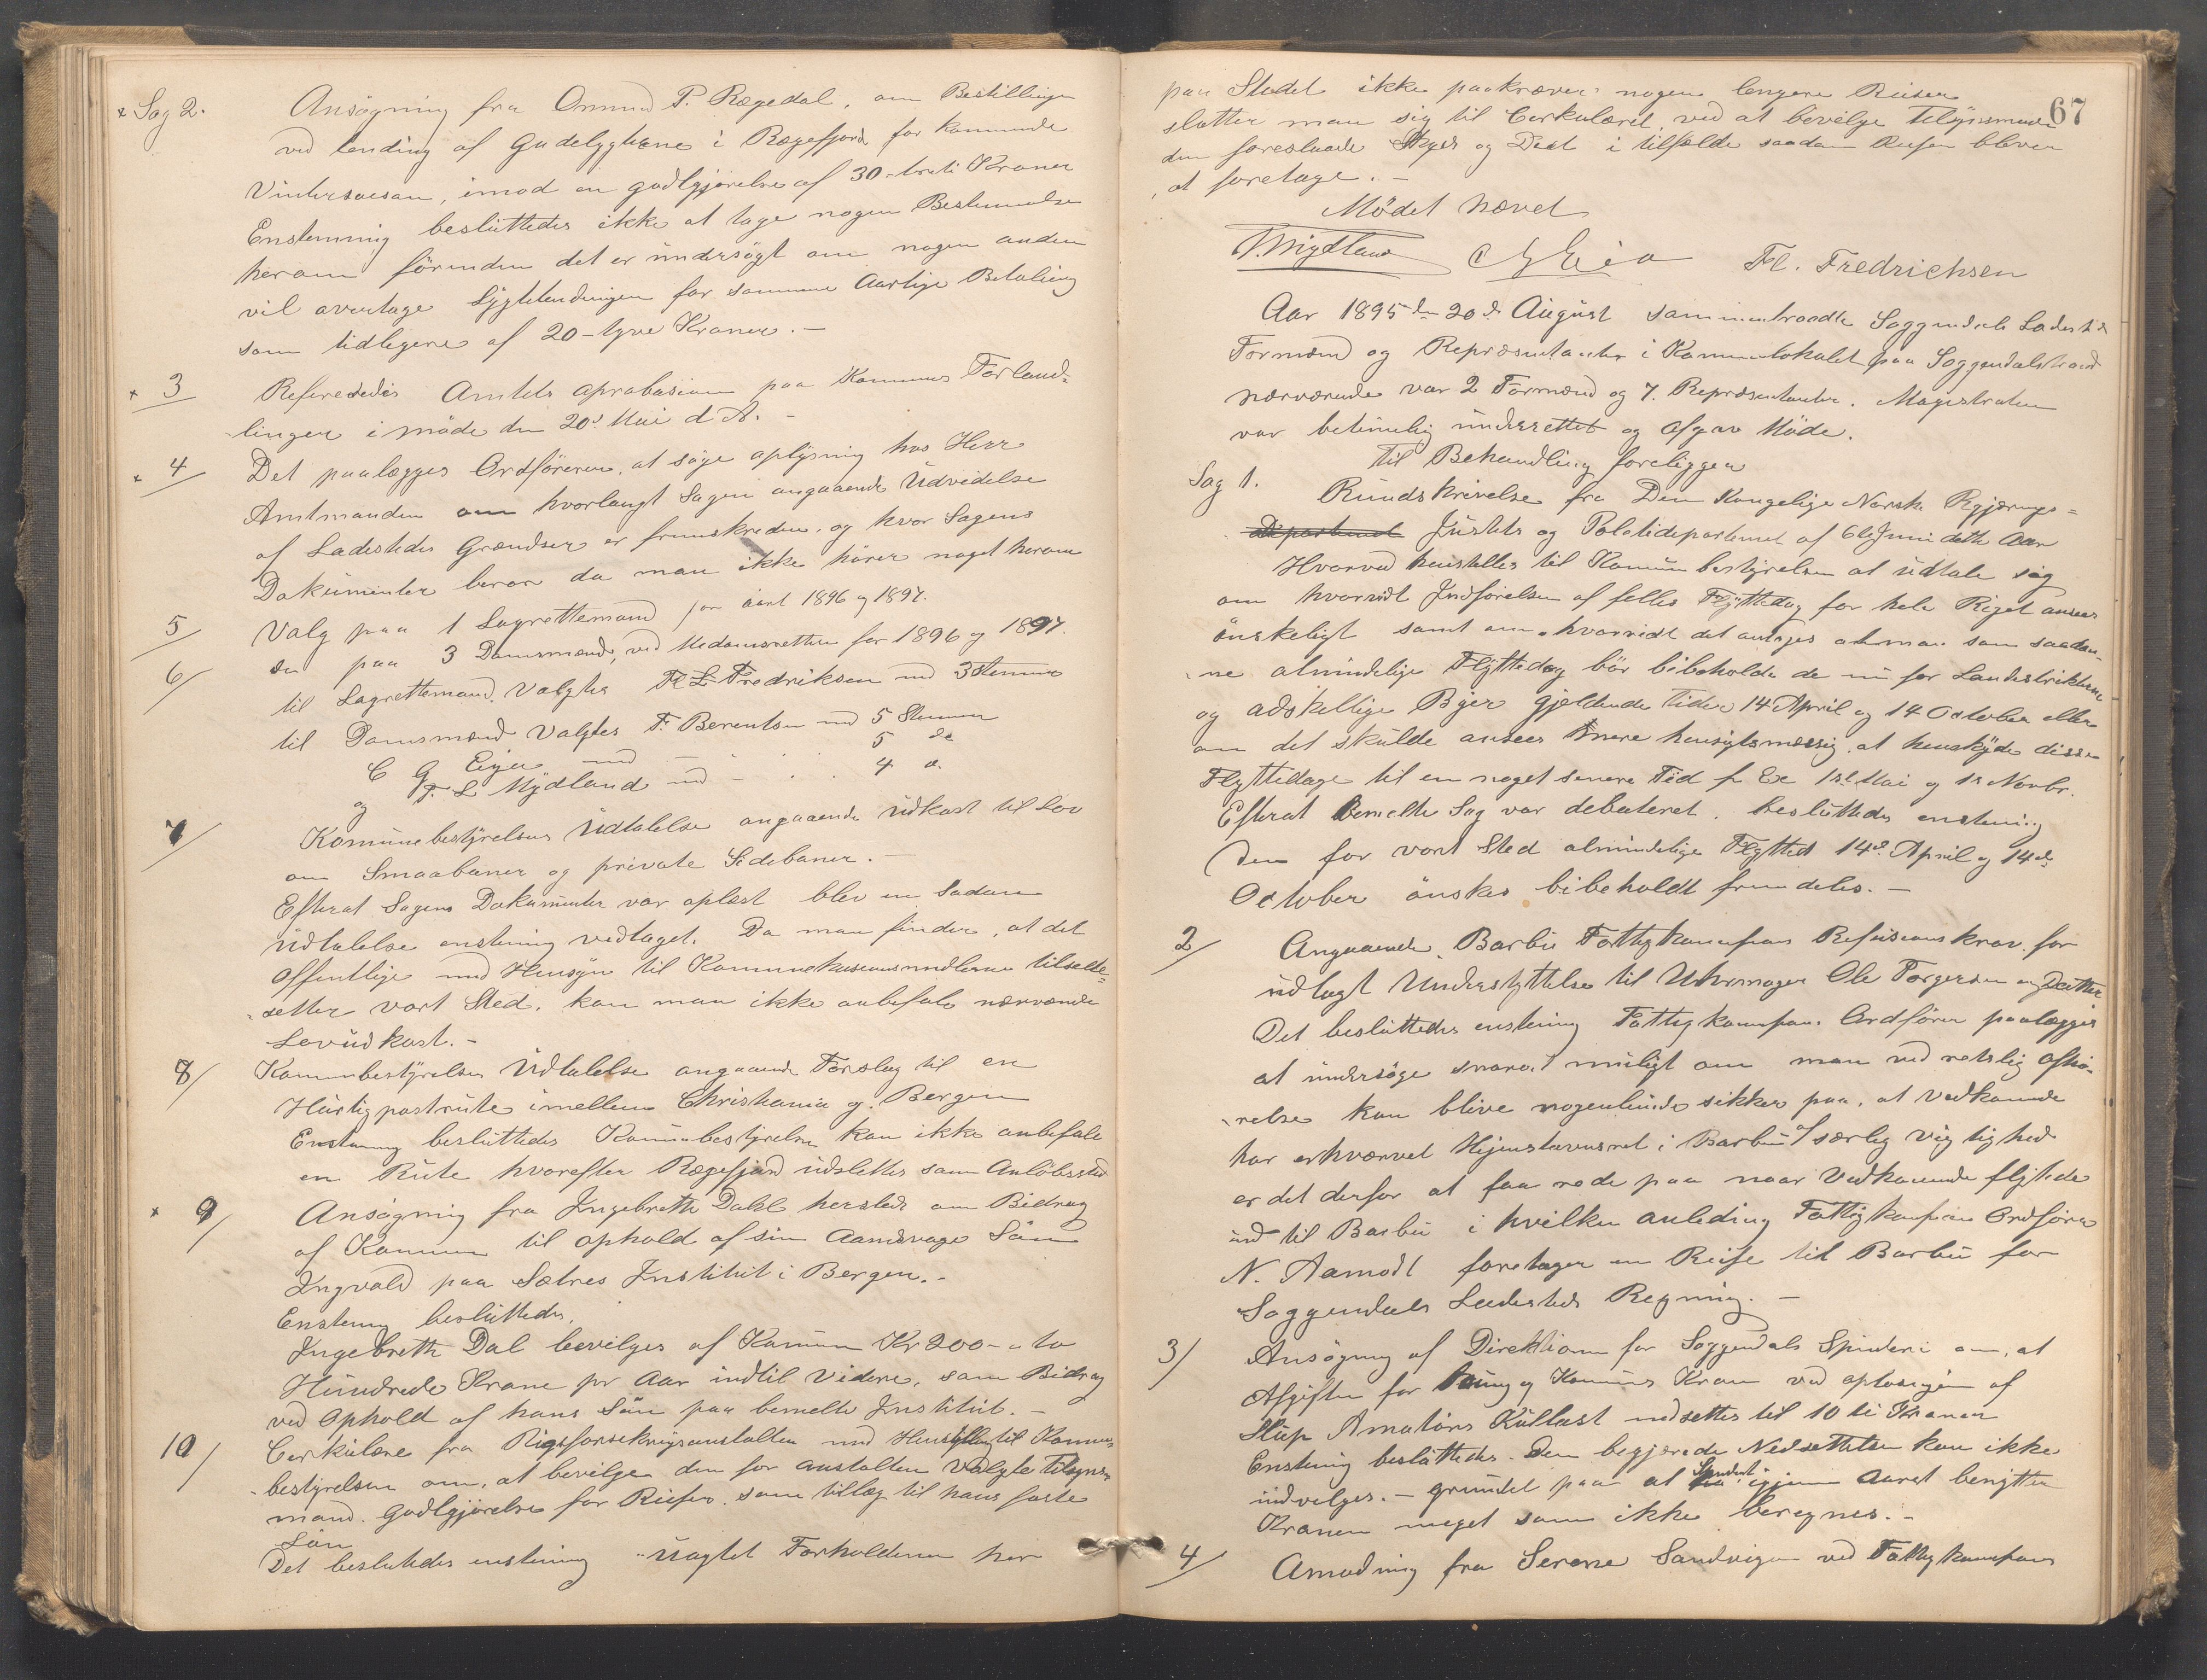 x Sag 2. Ansögning fra Omund P. Rægedal, om Bestillingen
ved tending af Gadelygterne i Rægefjord for kommende
Vintersaison, imod en godtgjørelse af 30 - treti Kroner
Enstemmig beslüttedes ikke at tage nogen Bestemmelse
herom förinden det er ündersögt om nogen anden
vil overtage Lygtetendingen for samme Aarlige Betaling
som tidligere af 20 - tyve Kroner. -
x 3 Refereredes Amtets aprobasion paa Kommunes Forhand-
linger i möde den 20de Mai d. A. -
x 4 Det paalægges Ordföreren, at söge oplysning hos Herr
Amtmanden om hvorlangt Sagen angaaende Üdvidelse
af Ladestedes Grændser er fremskreden, og hvor Sagens
Dokümenter beror da man ikke hörer noget herom
5/ Valg paa 1 Lagrettemand for aaret 1896 og 1897.
6/ do paa 3 Domsmænd, ved Medomsretten for 1896 og 1897.
til Lagrettemand Valgtes Fl. Fredriksen med 3 Stemmer
til Domsmænd Valgtes F. Berentsen med 5 Stemmer
C G Eiger med - 5 do
og T. L Mydland med - . . 4 do
7/ Komünebestyrelsens Üdtalelse angaaende üdkast til Lov
om Smaabaner og private Sidebaner. -
Efterat Sagens Dokümenter var oplæst blev en sadan
üdtalelse enstemig vedtaget. Da man finder, at det
Offentlige med Hensyn til Kommunekasseusmidlerne tilside-
setter vort Sted, kan man ikke anbefale nærværende
Lovüdkast. -
8/ Kommunbestyrelsens Üdtalelse angaaende Forslag til en
Hürtigpostrüte imellem Christiania og Bergen
Enstemmig beslüttedes Komünebestyrelsen kan ikke anbefale
en Rüte hvorefter Rægefjord üdslettes som Anlöbssted
x 9/ Ansögning fra Ingebreth Dahl hersteds om Bidrag
af Kommunen til ophold af sin Aandsvage Sön
Ingvald paa Sælres Institüt i Bergen. -
Enstemig beslüttedes,
Ingebreth Dal bevilges af Kommunen Kr 200 - to
Hündrede Krone pr Aar indtil Videre, som Bidrag
ved Ophold af hans Sön paa bemelte Institüt. -
10/ Cerkülære fra Rigsforsekringsanstalten med Henstilling til Kommune-
bestyrelsen om, at bevilge den for anstalten Valgte Tilsyns-
mand Godtgjörelse for Reiser som tillæg til hans faste
Lön
Det beslutedes enstemig üagtet Forholdene her
67
paa Stedet ikke paakræver nogen lengere Reiser
slutter man sig til Cerkülæret ved at bevilge Tilsynsmanden
den foreslaaede Skyds og Diæt i tilfælde saadan Reiser bliver
at foretage. -
Mödet hævet
T. Mydland C G Eia Fl. Fredrichsen
Aar 1895 den 20de Aügüst sammentraadte Soggendals Ladesteds
Formænd og Repræsentanter i Kommunelokalet paa Soggendalstrand
nærværende var 2 Formænd og 7. Repræsentanter. Magistraten
var betimelig ünderrettet og afgav Möde.
Til Behandling foreligger
Sag 1. Ründskrivelse fra Den Kongelige Norske Regjærings-
Departement Jüstets og Politidepartement af 6te Juni dette Aar
Hvorved henstilles til Komünbestyrelsen at üdtale sig
om hvorvidt Indförelsen af felles Flyttedag for hele Riget ansees
önskeligt samt om hvorvidt det antages at man som saadan-
ne almindelige Flyttedag bör bibeholde de nü for Landdistrikterne
og adskillige Byer Gjeldende Tider 14 April og 14 October eller
om det skülde ansees mere hensigtsmæssig, at henskyde disse
Flyttedage til en noget senere Tid f. Ex 1ste Mai og 1ste Novbr.
Efterat Bemelte Sag var debateret, beslüttedes enstemig
Den for vort Sted almindelige Flyttetid 14de April og 14de
October önskes bibeholdt fremdeles. -
2/ Angaaende Barbü Fattigkommisions Refüsionskrav for
üdlagt Understyttelse til Uhrmager Ole Torgersen og Datter
Det beslüttedes enstemig Fattigkommissionens Ordförer paalegges
at ündersöge snarest müligt om man ved retslig afhö-
relse kan blive nogenlünde sikker paa, at Vedkommende
har erhværvet Hjemstavnsret i Barbü af særlig vigtighed
er det derfor at faa rede paa naar Vedkommende flyttede
ind til Barbü i hvilken anleding Fattigkommisionens Ordförer
N. Aamodt foretager en Reise til Barbü for
Soggendals Ladesteds Regning. -
3/ Ansögning af Direktionen for Soggendals Spinderi om, at
Afgiften for Brüg af Komünes Kran ved oplosingen af
Slup Amatörs Küllast nedsettes til 10 ti Kroner
Enstemig beslüttedes. Den begjærede Nedsettelse kan ikke
indvelges. - gründet paa at Spinderiet igjenem Aaret benytter
Kranen meget som ikke beregnes. -
4/ Anmodning fra Serene Sandvigen ved Fattigkommisions